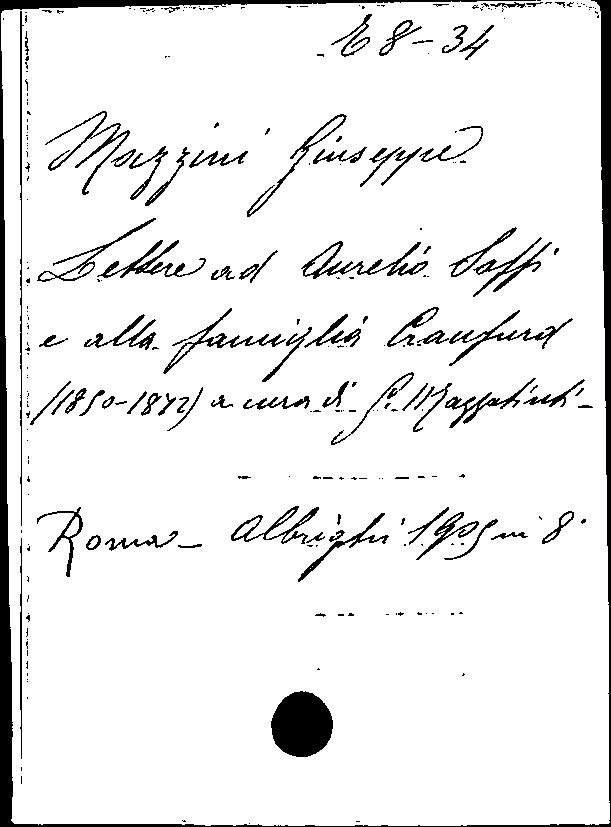 E 8-34
Mazzini Giuseppe
Lettere ad Aurelio Saffi
e alla famiglia Craufurd
(1850-1872) a cura di G. Mazzatinti-
Roma - Albrighi 1905 in 8°